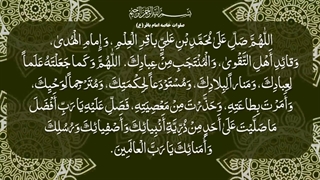 بسم الله الرحمن الرحیم
صلوات خاصه امام باقر (ع)
اَللّٰهُمَّ صَلِّ عَلىٰ مُحَمَّدِ بْنِ عَلِيٍّ بَاقِرِ الْعِلْمِ، وَ اِمَامِ الْهُدىٰ،
وَ قَائِدِ أَهْلِ التَّقْوىٰ، وَالْمُنْتَجَبِ مِنْ عِبَادِكَ. اَللّٰهُمَّ وَ كَمَا جَعَلْتَهُ عَلَماً
لِعِبَادِكَ، وَ مَنَاراً لِبِلَادِكَ، وَ مُسْتَوْدَعاً لِحِكْمَتِكَ، وَ مُتَرْجِماً لِوَحْيِكَ،
وَ أَمَرْتَ بِطَاعَتِهِ، وَ حَذَّرْتَ مِنْ مَعْصِيَتِهِ، فَصَلِّ عَلَيْهِ يَا رَبِّ أَفْضَلَ
مَا صَلَّيْتَ عَلىٰ أَحَدٍ مِنْ ذُرِّيَّةِ أَنْبِيَائِكَ وَ أَصْفِيَائِكَ وَ رُسُلِكَ
وَ أُمَنَائِكَ يَا رَبَّ الْعَالَمِينَ.